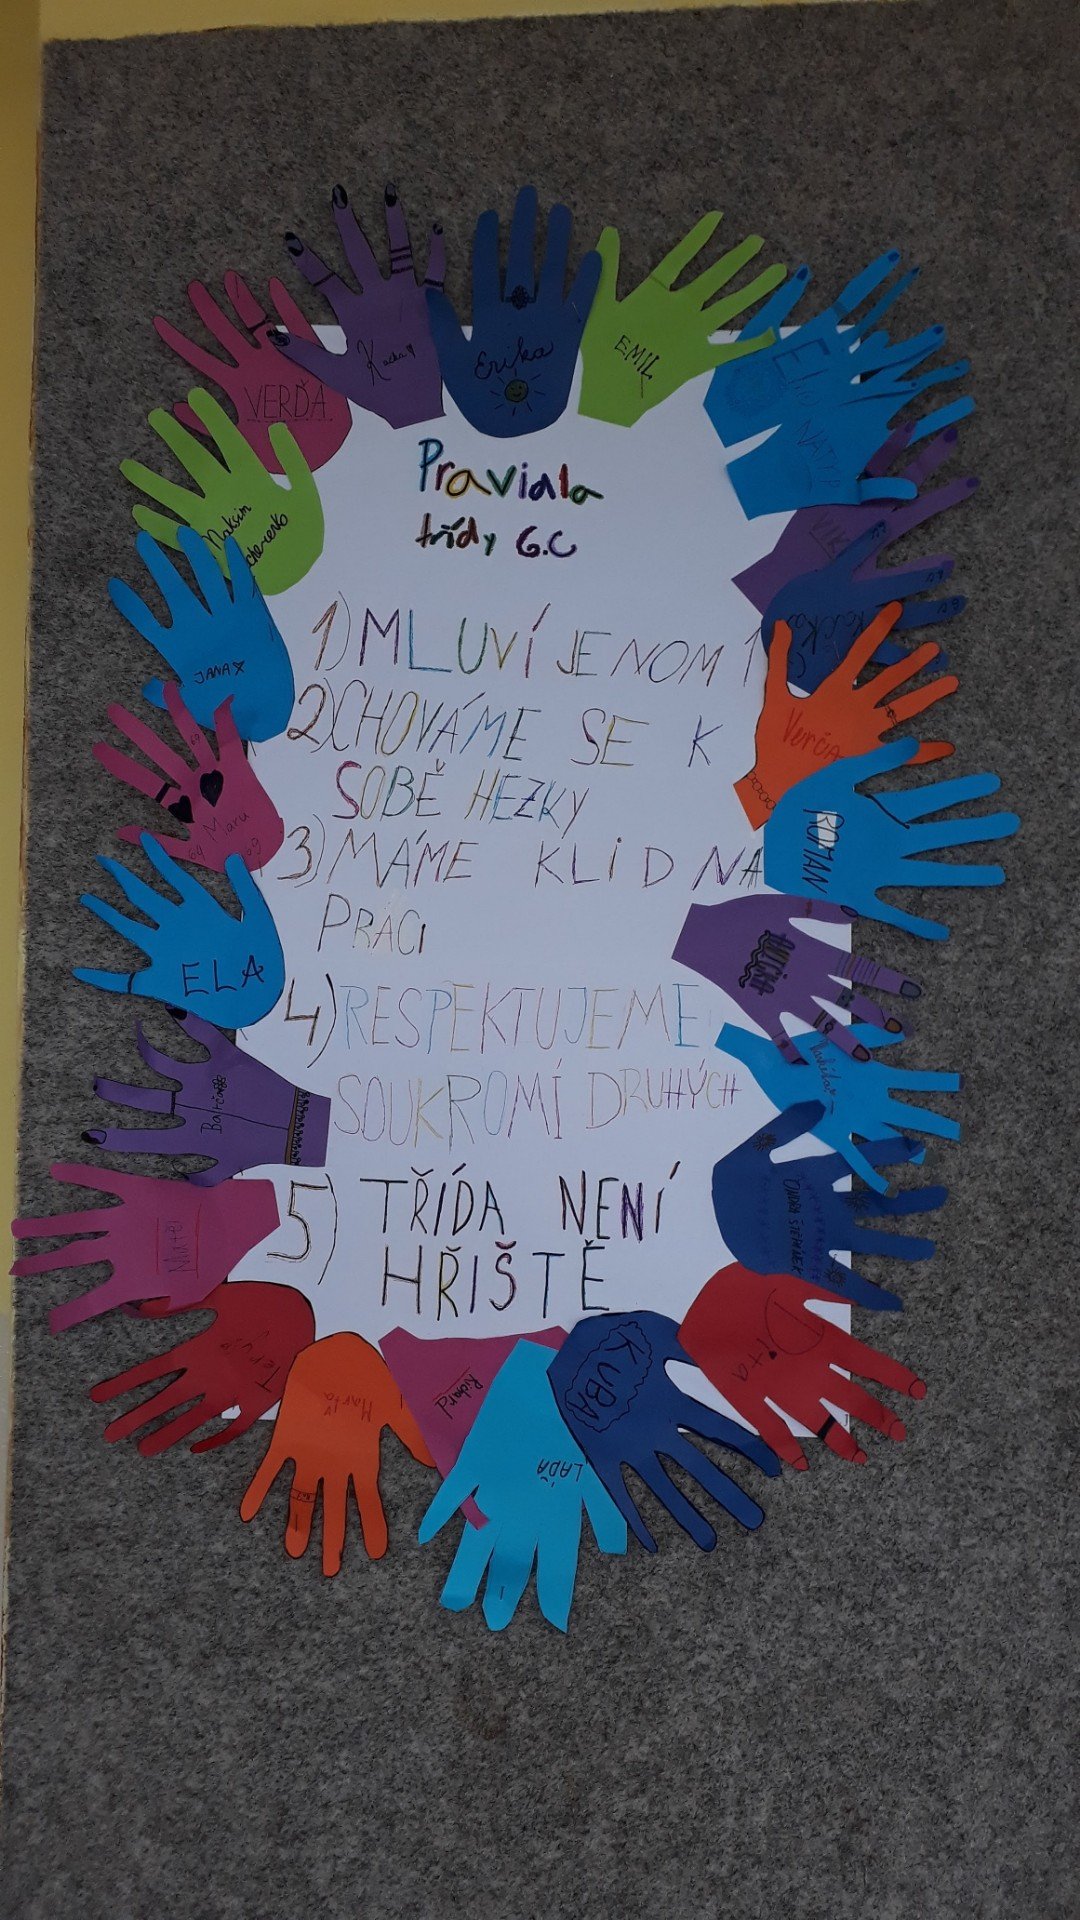 VERĎA
Kačka
Erika
EMIL
Maksim
JANA
Maru
69
69
ELA
Barča
Matěj
Terka
Marta
Richard
LAĎA
KUBA
Dita
ONDRA ŠTĚPÁNEK
ANIČKA
ROMAN
Verča
Praviala
třídy 6.C
1) MLUVÍ JENOM 1
2) CHOVÁME SE K
SOBĚ HEZKY
3) MÁME KLID NA
PRÁCI
4) RESPEKTUJEME
SOUKROMÍ DRUHÝCH
5) TŘÍDA NENÍ
HŘIŠTĚ